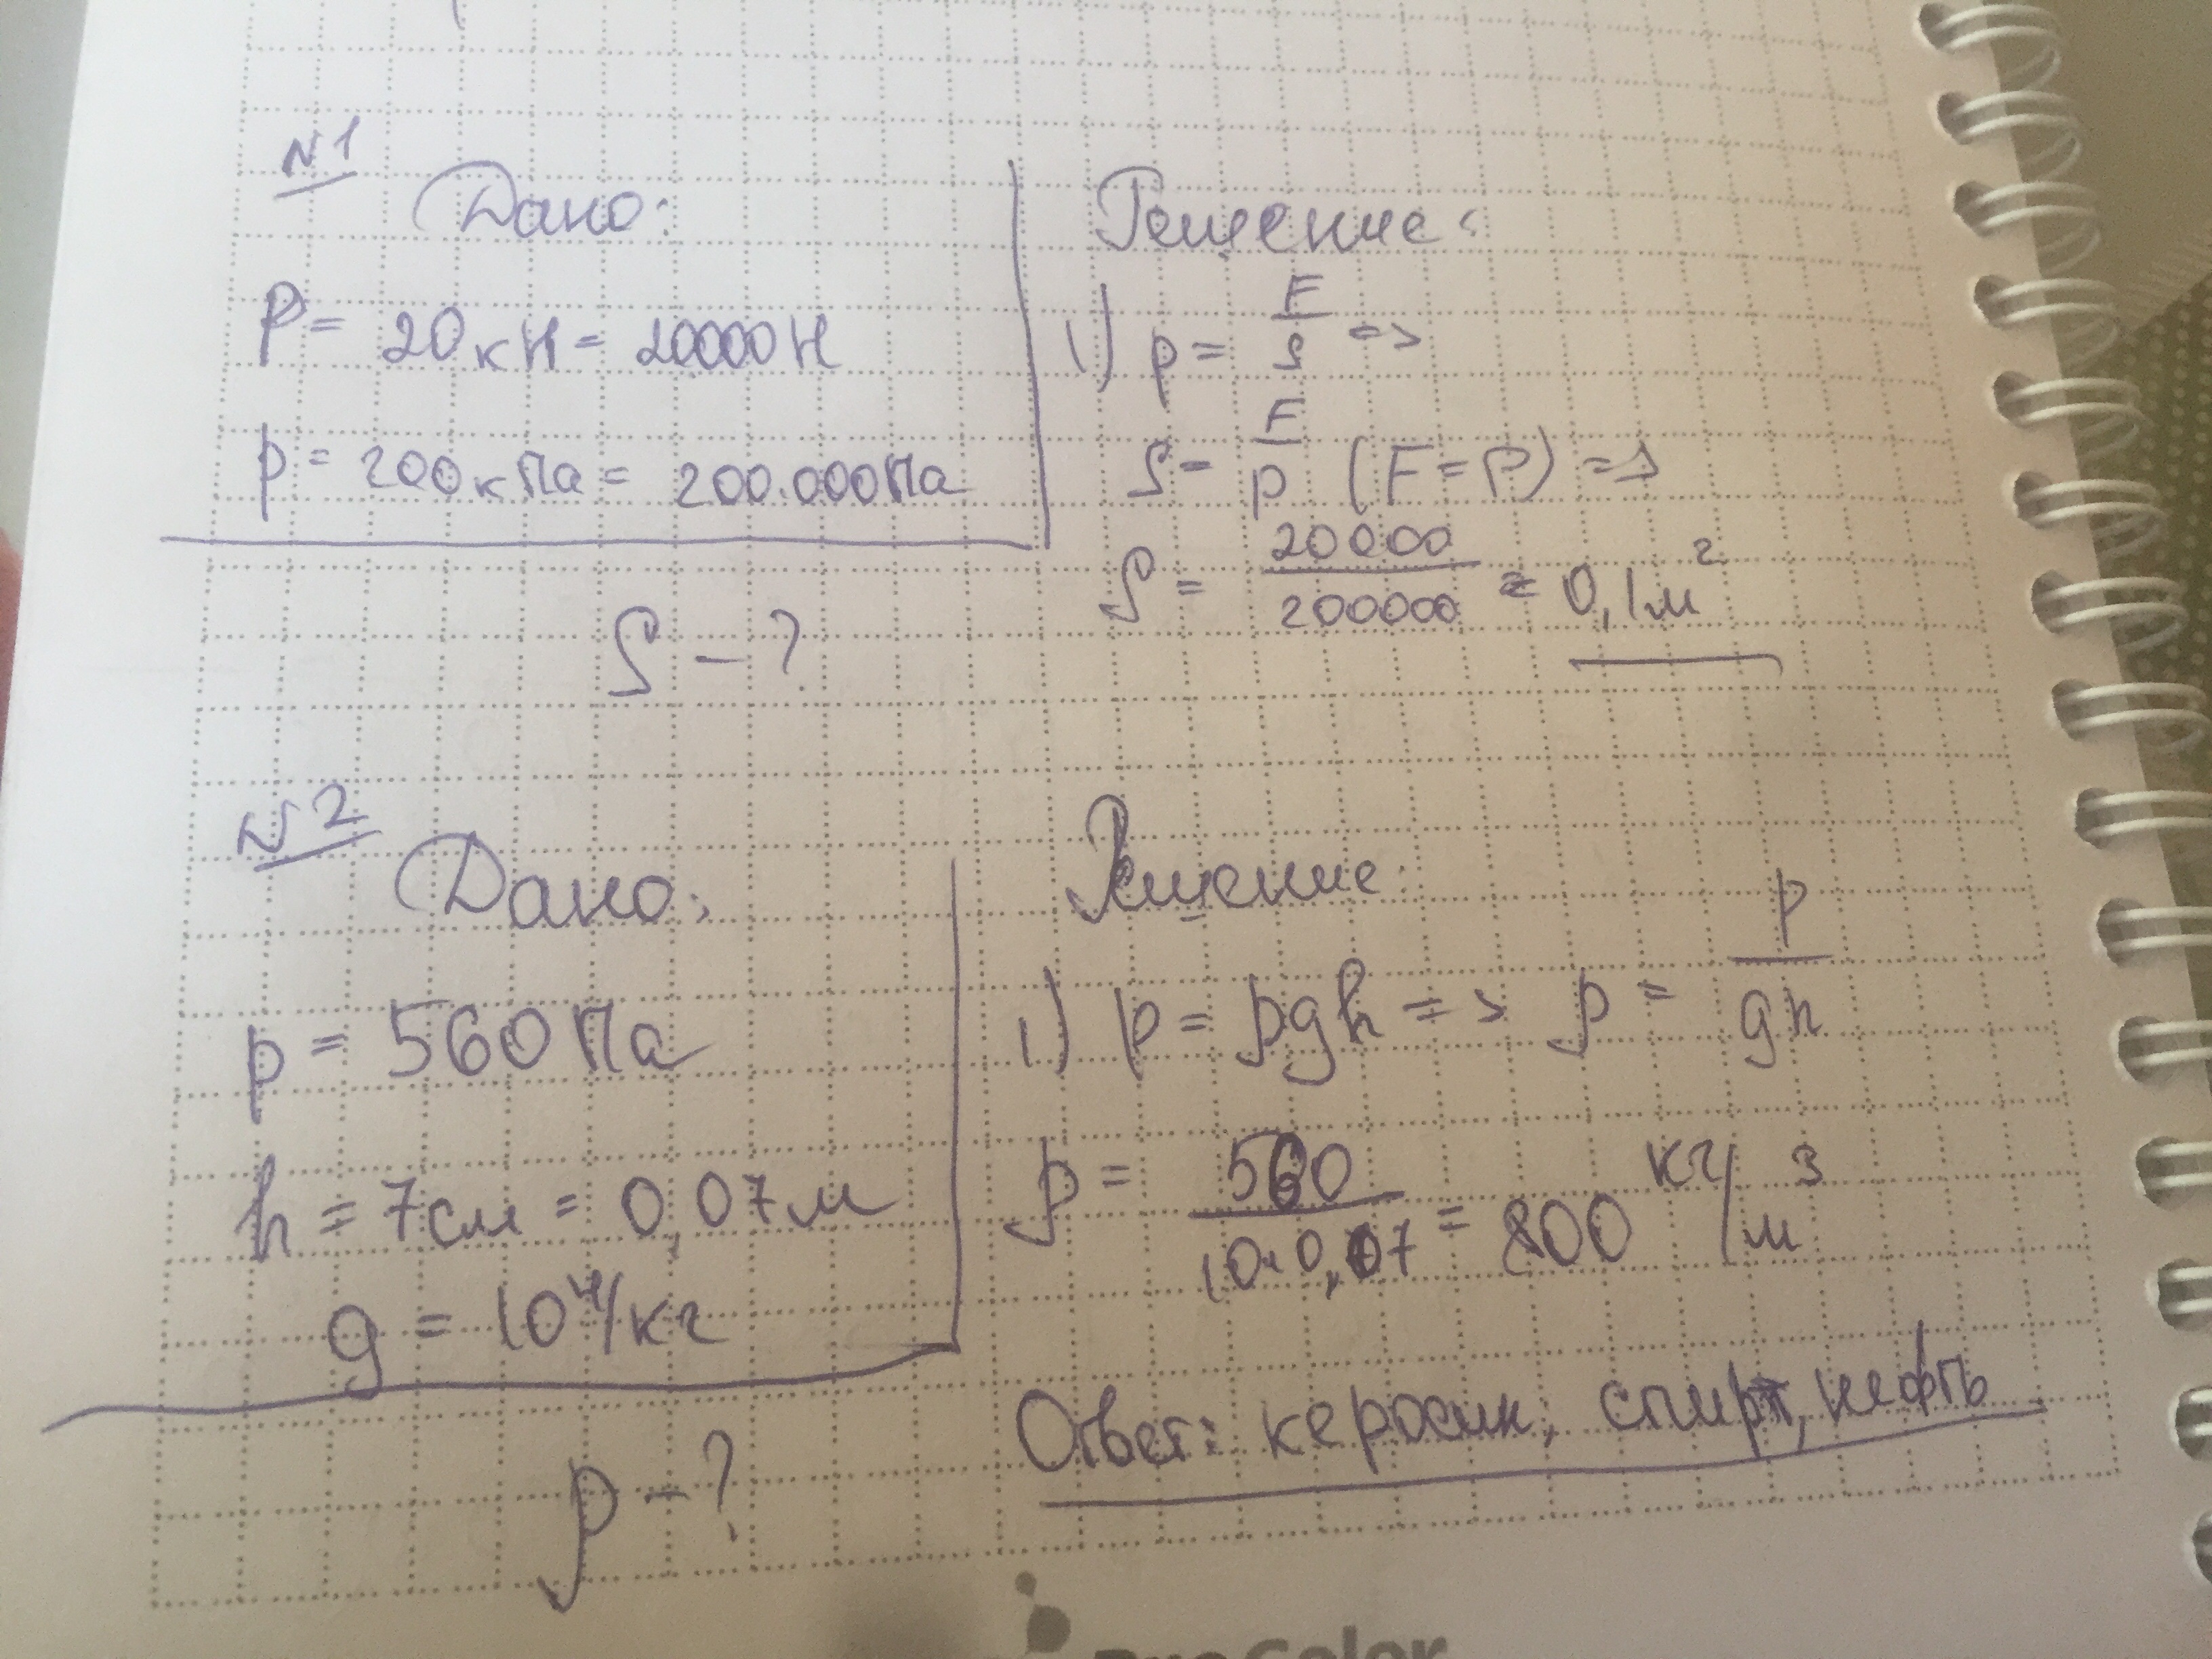 №1
Дано:
P = 20 кН = 20000 Н
p = 200 кПа = 200.000 Па
S - ?
Решение:
1) p = F/S =>
S = F/p (F = P) =>
S = 20000/200000 = 0,1 м²
№2
Дано:
p = 560 Па
h = 7 см = 0,07 м
g = 10 Н/кг
ρ - ?
Решение:
1) p = ρgh => ρ = p/gh
ρ = 560/10·0,07 = 800 кг/м³
Ответ: керосин, спирт, нефть